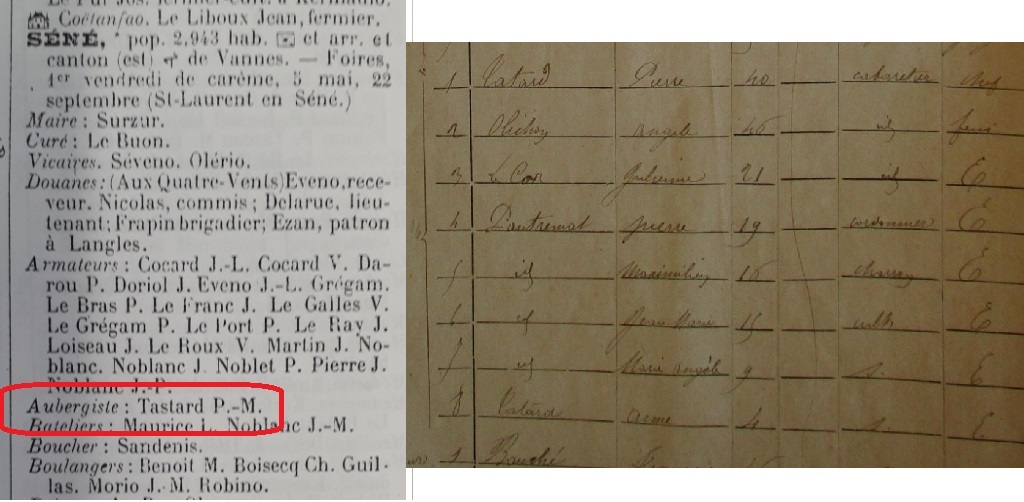 Coëtansao. Le Liboux Jean, fermier.
SÉNÉ, pop. 2,943 hab. et arr. et
canton (est) de Vannes. — Foires,
1er vendredi de carème, 5 mai, 22
septembre (St-Laurent en Séné.)
Maire : Surzur.
Curé : Le Buon.
Vicaires. Séveno. Olério.
Douanes : (Aux Quatre-Vents) Eveno, rece-
veur. Nicolas, commis ; Delarue, lieu-
tenant; Frapin brigadier; Ezan, patron
à Langles.
Armateurs : Cocard J.-L. Cocard V. Da-
rou P. Doriol J. Eveno J.-L. Grégam.
Le Bras P. Le Franc J. Le Galles V.
Le Grégam P. Le Port P. Le Ray J.
Loiseau J. Le Roux V. Martin J. No-
blanc. Noblanc J. Noblet P. Pierre J.
Noblanc J.-P.
Aubergiste : Tastard P.-M.
Bateliers : Maurice L. Noblanc J.-M.
Boucher : Sandenis.
Boulangers : Benoit M. Boisecq Ch. Guil-
las. Morio J.-M. Robino.
1 Tatard Pierre 40 cabaretier
2 angèle 46 id
3 21 id E
4 Dautremat pierre 19 cordonnier E
5 id 16 E
6 id Jean Marie 15 cult E
7 id Marie angèle 9 E
8 Tatard anne 4 E
1 Bauché